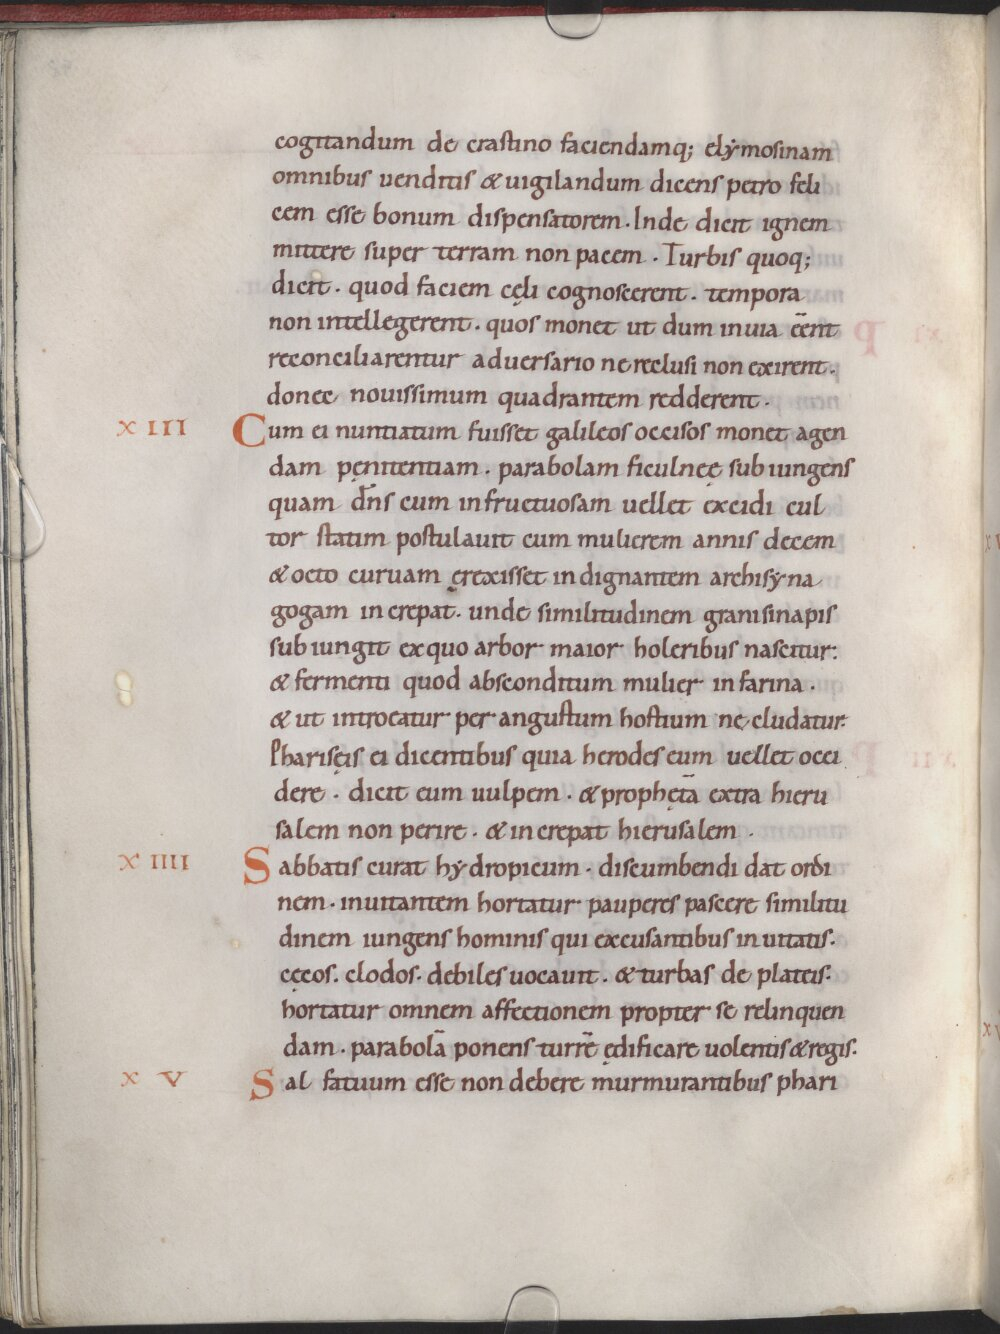 cogitandum de crastino faciendamq; elẏmosinam
omnibus uenditis & uigilandum dicens petro feli
cem esse bonum dispensatorem. Inde dicit ignem
mittere super terram non pacem. Turbis quoq;
dicit. quod faciem cęli cognoscerent. tempora
non intellegerent. quos monet ut dum in uia eēnt
reconciliarentur aduersario ne reclusi non exirent.
donec nouissimum quadrantem redderent.
XIII Cum ei nuntiatum fuisset galileos occisos monet agen
dam pęnitentiam. parabolam ficulneę subiungens
quam dn̄s cum infructuosam uellet excidi cul
tor statim postulauit cum mulierem annis decem
& octo curuam ęrexisset indignantem archisẏna
gogam increpat. unde similitudinem grani sinapis
subiungit ex quo arbor maior holeribus nascitur:
& fermenti quod absconditum mulier in farina.
& ut introeatur per angustum hostium ne cludatur.
Pharisęis ei dicentibus quia herodes eum uellet occi
dere. dicit eum uulpem. & prophętā extra hieru
salem non perire. & increpat hierusalem.
XIIII Sabbatis curat hẏdropicum. discumbendi dat ordi
nem. inuitantem hortatur pauperes pascere similitu
dinem iungens hominis qui excusantibus inuitatis.
cęcos. clodos. debiles uocauit. & turbas de plateis.
hortatur omnem affectionem propter se relinquen
dam. parabolā ponens turrē ędificare uolentis & regis.
XV Sal fatuum esse non debere murmurantibus phari